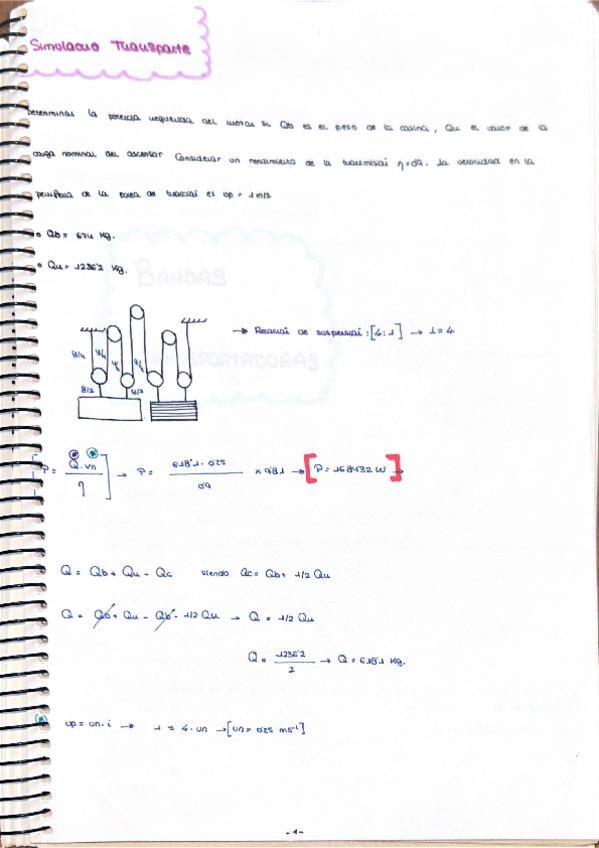 Simulacro Transporte
Determinar la potencia requerida del motor si Qb es el peso de la cabina, Qu el valor de la
carga nominal del ascensor Considerar un rendimiento de la transmisión η=0'9. La velocidad en la
periferia de la polea de tracción es vp = 1 m/s
• Qb = 674 Kg.
• Qu = 1236'2 Kg.
→ Relación de suspensión: [4:1] → i = 4
Q/4 Q/4
Q/2 Q/2
BANDAS
TRANSPORTADORAS
[P = Q·vn / η] → P = 618'1 · 0'25 / 0'9 × 9'81 → [P = 1684'32 W] →
Q = Qb + Qu - Qc siendo Qc = Qb + 1/2 Qu
Q = Qb + Qu - Qb - 1/2 Qu → Q = 1/2 Qu
Q = 1236'2 / 2 → Q = 618'1 Kg.
vp = vn · i → 1 = 4 · vn → [vn = 0'25 ms⁻¹]
-1-